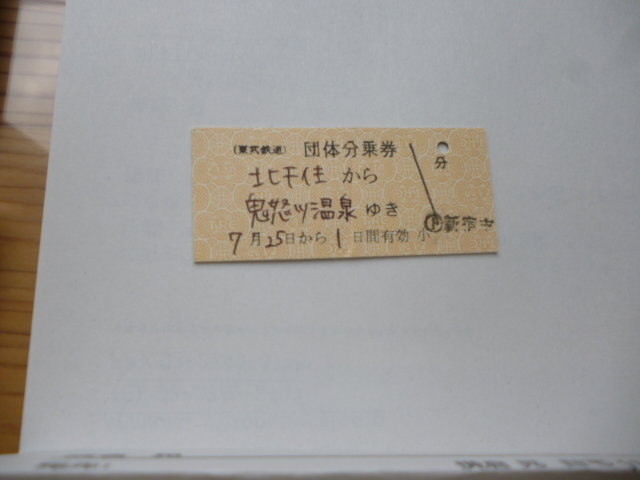 (東武鉄道) 団体分乗券
分
北千住 から
鬼怒川温泉 ゆき
7月25日から1日間有効 小
新宿